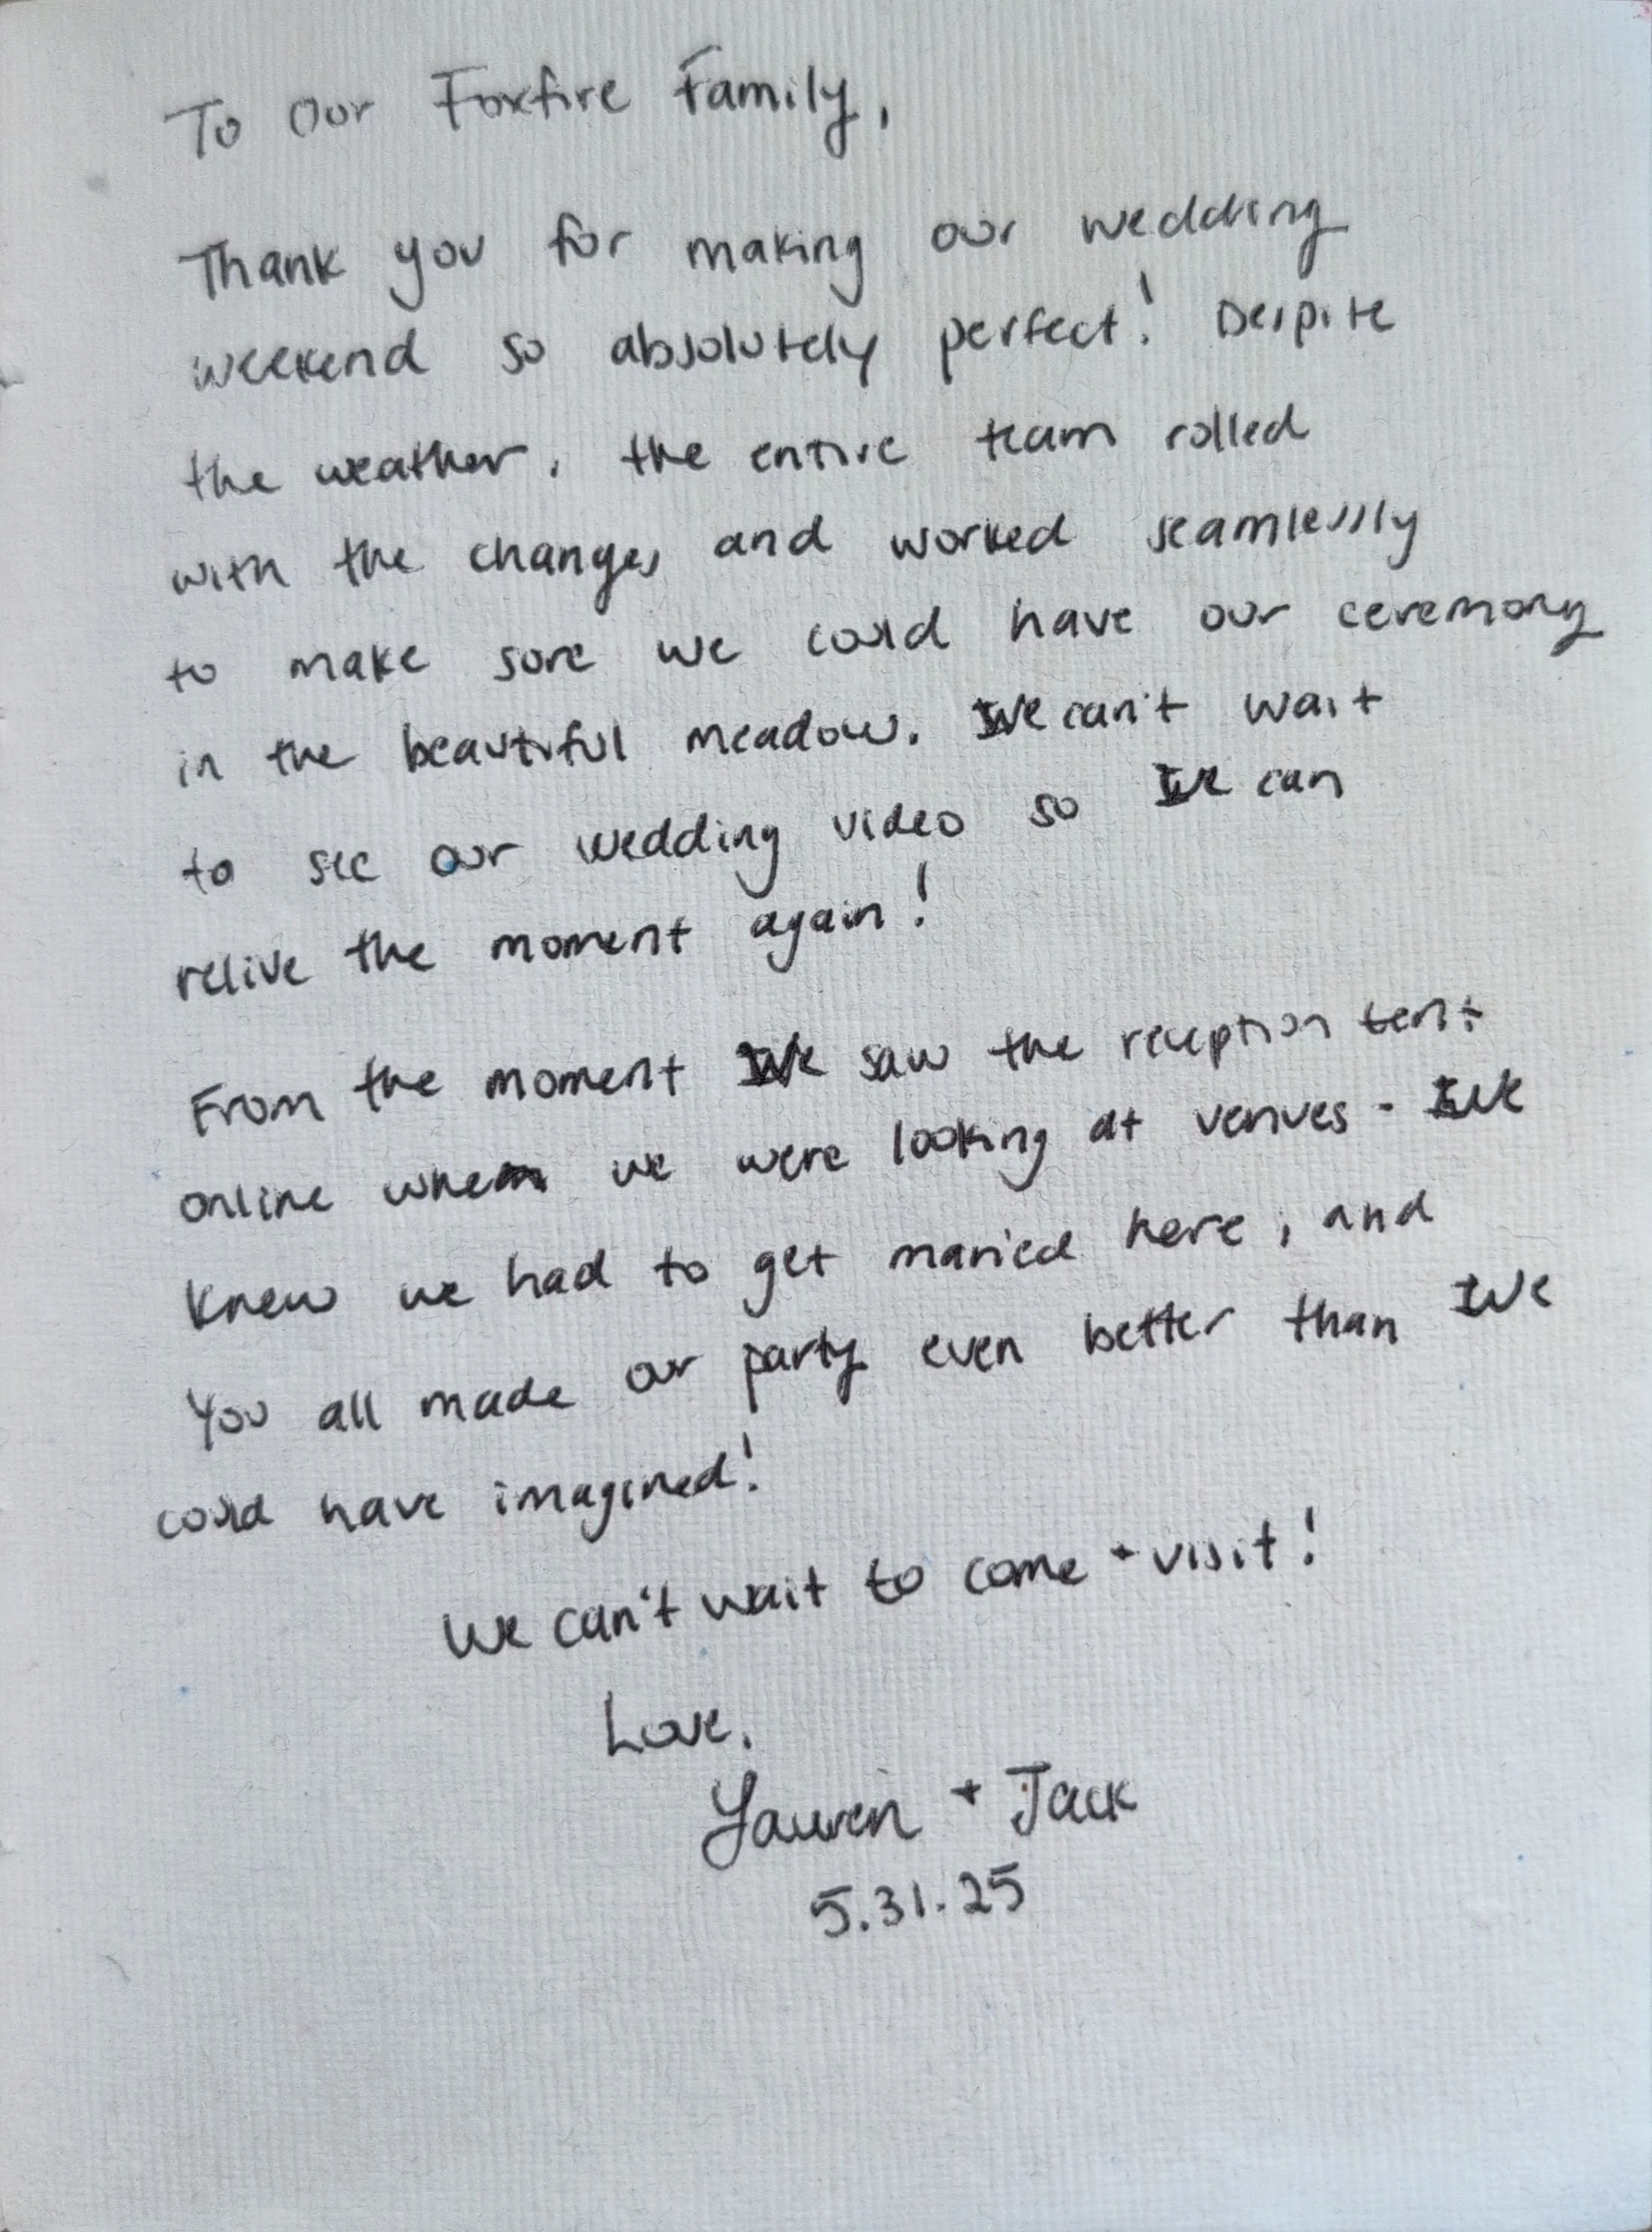 To Our Foxfire Family,
Thank you for making our wedding
weekend so absolutely perfect! Despite
the weather, the entire team rolled
with the changes and worked seamlessly
to make sure we could have our ceremony
in the beautiful meadow. We can't wait
to see our wedding video so we can
relive the moment again!
From the moment We saw the reception tent
online when we were looking at venues - We
knew we had to get married here, and
You all made our party even better than We
could have imagined!
We can't wait to come + visit!
Love,
Lauren + Jack
5.31.25